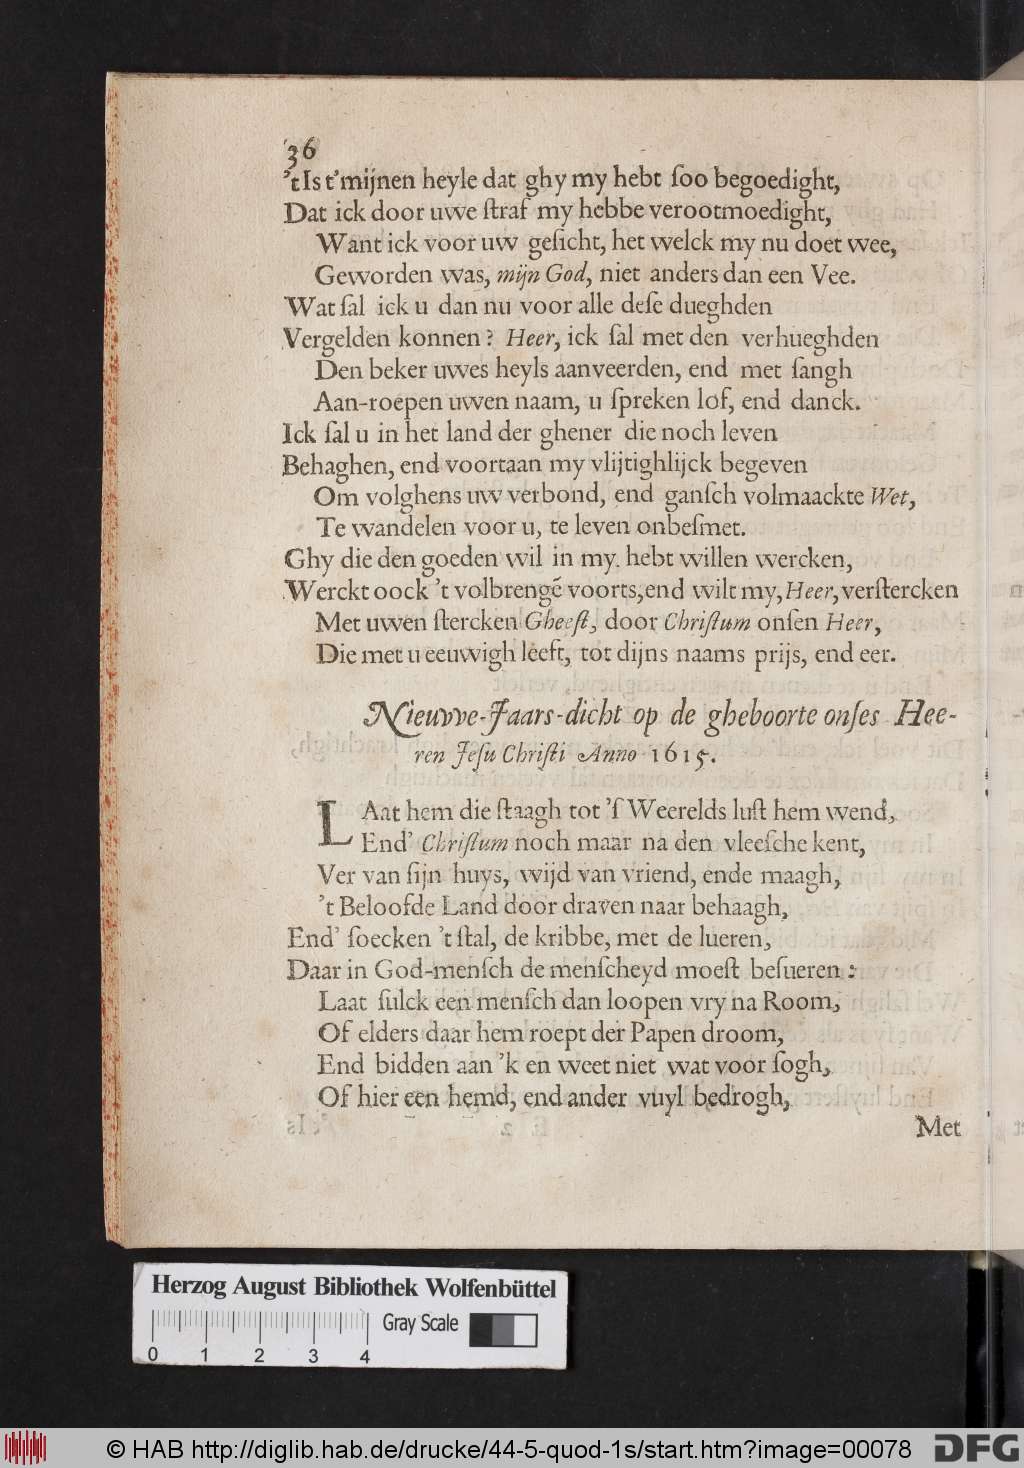 36
’t Is t’mijnen heyle dat ghy my hebt ſoo begoedight,
Dat ick door uwe ſtraf my hebbe verootmoedight,
Want ick voor uw geſicht, het welck my nu doet wee,
Geworden was, mijn God, niet anders dan een Vee.
Wat ſal ick u dan nu voor alle deſe dueghden
Vergelden konnen? Heer, ick ſal met den verhueghden
Den beker uwes heyls aanveerden, end met ſangh
Aan-roepen uwen naam, u ſpreken lof, end danck.
Ick ſal u in het land der ghener die noch leven
Behaghen, end voortaan my vlijtighlijck begeven
Om volghens uw verbond, end ganſch volmaackte Wet,
Te wandelen voor u, te leven onbeſmet.
Ghy die den goeden wil in my. hebt willen wercken,
Werckt oock ’t volbrengẽ voorts, end wilt my, Heer, verſtercken
Met uwen ſtercken Gheeſt, door Chriſtum onſen Heer,
Die met u eeuwigh leeft, tot dijns naams prijs, end eer.
Nieuvve-Jaars-dicht op de gheboorte onſes Hee-
ren Jeſu Chriſti Anno 1615.
LAat hem die ſtaagh tot ’ſ Weerelds luſt hem wend,
End’ Chriſtum noch maar na den vleeſche kent,
Ver van ſijn huys, wijd van vriend, ende maagh,
’t Beloofde Land door draven naar behaagh,
End’ ſoecken ’t ſtal, de kribbe, met de lueren,
Daar in God-menſch de menſcheyd moeſt beſueren:
Laat ſulck een menſch dan loopen vry na Room,
Of elders daar hem roept der Papen droom,
End bidden aan ’k en weet niet wat voor ſogh,
Of hier een hemd, end ander vuyl bedrogh,
Met
Herzog August Bibliothek Wolfenbüttel
Gray Scale
0 1 2 3 4
© HAB http://diglib.hab.de/drucke/44-5-quod-1s/start.htm?image=00078
DFG